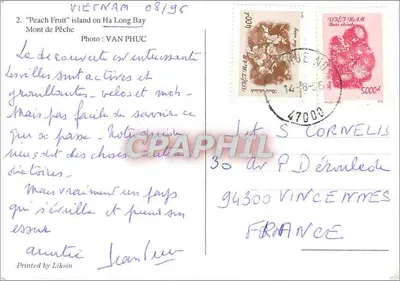 VIETNAM 08/96
2. "Peach Fruit" island on Ha Long Bay
Mont de Pêche
Photo : VAN PHUC
La découverte est intéressante
Les villes sont actives et
grouillantes - velos et mots -
Mais pas facile de savoir ce
que se passe. Notre guide
nous dit des choses
dictoires -
Mais vraiment un pays
qui s'éveille et prend son
essor
amitié
Printed by Liksin
VIET NAM
400đ
VIET NAM
5000đ
14-8-96
47000
J et S CORNELIS
30 Av P Déroulède
94300 VINCENNES
FRANCE
CPAPHIL